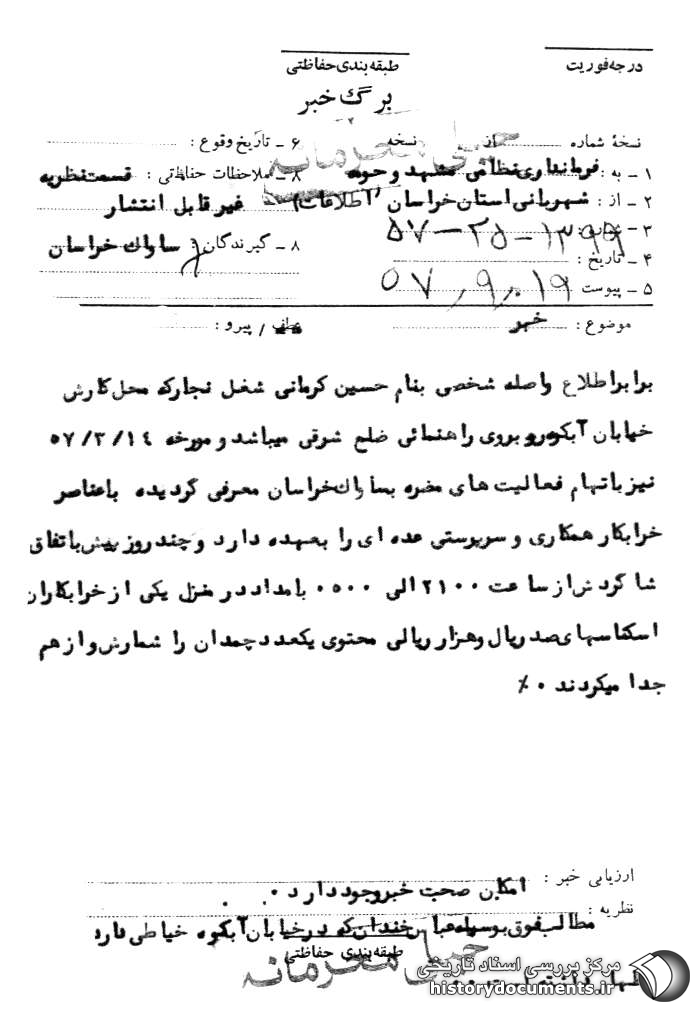 درجه فوریت
طبقه بندی حفاظتی
برگ خبر
خیلی محرمانه
نسخهٔ شماره از نسخه
۱ - به : فرمانداری نظامی مشهد و حومه
۲ - از : شهربانی استان خراسان (اطلاعات)
۳ - ۱۳۹۹ - ۲۵ - ۵۷
۴ - تاریخ : ۵۷٫۹٫۱۹
۵ - پیوست
۶ - تاریخ وقوع :
۸ - ملاحظات حفاظتی : قسمت نظریه
غیر قابل انتشار
۸ - گیرندگان : ساواک خراسان
موضوع : خبر
عطف / پیرو :
برابر اطلاع واصله شخصی بنام حسین کرمانی شغل نجارکه محل کارش
خیابان آبکوه روبروی راهنمائی ضلع شرقی میباشد و مورخه ۵۷/۳/۱۴
نیز باتهام فعالیت های مضره بساواک خراسان معرفی گردیده باعناصر
خرابکار همکاری و سرپوستی عده ای را بعهده دارد و چند روز پیش باتفاق
شاگردش از ساعت ۲۱۰۰ الی ۰۵۰۰ بامداد در منزل یکی از خرابکاران
اسکناسهای صد ریال و هزار ریالی محتوی یکعدد چمدان را شمارش و از هم
جدا میکردند ۰٪
ارزیابی خبر : امکان صحت خبر وجود دارد ۰
نظریه :
مطالب فوق بوسیله عباس خندان که در خیابان آبکوه خیاطی دارد
طبقه بندی حفاظتی
خیلی محرمانه
مرکز بررسی اسناد تاریخی
historydocuments.ir